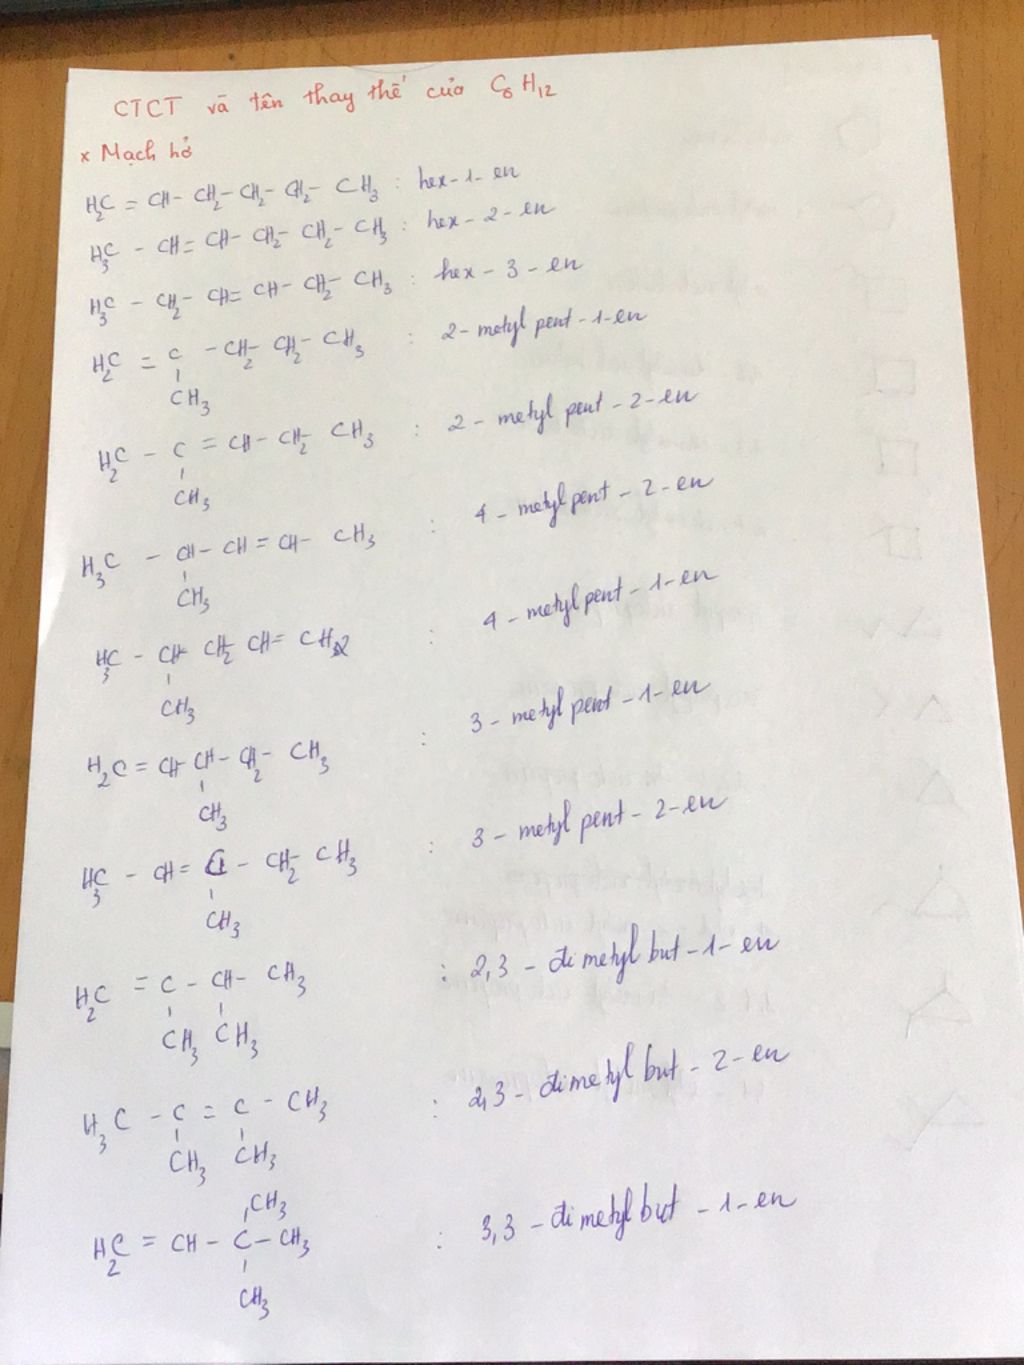 CTCT và tên thay thế của C6H12
x Mạch hở
H2C = CH - CH2 - CH2 - CH2 - CH3 : hex - 1 - en
H3C - CH = CH - CH2 - CH2 - CH3 : hex - 2 - en
H3C - CH2 - CH = CH - CH2 - CH3 : hex - 3 - en
H2C = C - CH2 - CH2 - CH3 : 2 - metyl pent - 1 - en
CH3
H2C - C = CH - CH2 - CH3 : 2 - metyl pent - 2 - en
CH3
H3C - CH - CH = CH - CH3 : 4 - metyl pent - 2 - en
CH3
H3C - CH - CH2 - CH = CH2 : 4 - metyl pent - 1 - en
CH3
H2C = CH - CH - CH2 - CH3 : 3 - metyl pent - 1 - en
CH3
H3C - CH = C - CH2 - CH3 : 3 - metyl pent - 2 - en
CH3
H2C = C - CH - CH3 : 2,3 - đimetyl but - 1 - en
CH3 CH3
H3C - C = C - CH3 : 2,3 - đimetyl but - 2 - en
CH3 CH3
CH3
H2C = CH - C - CH3 : 3,3 - đimetyl but - 1 - en
CH3